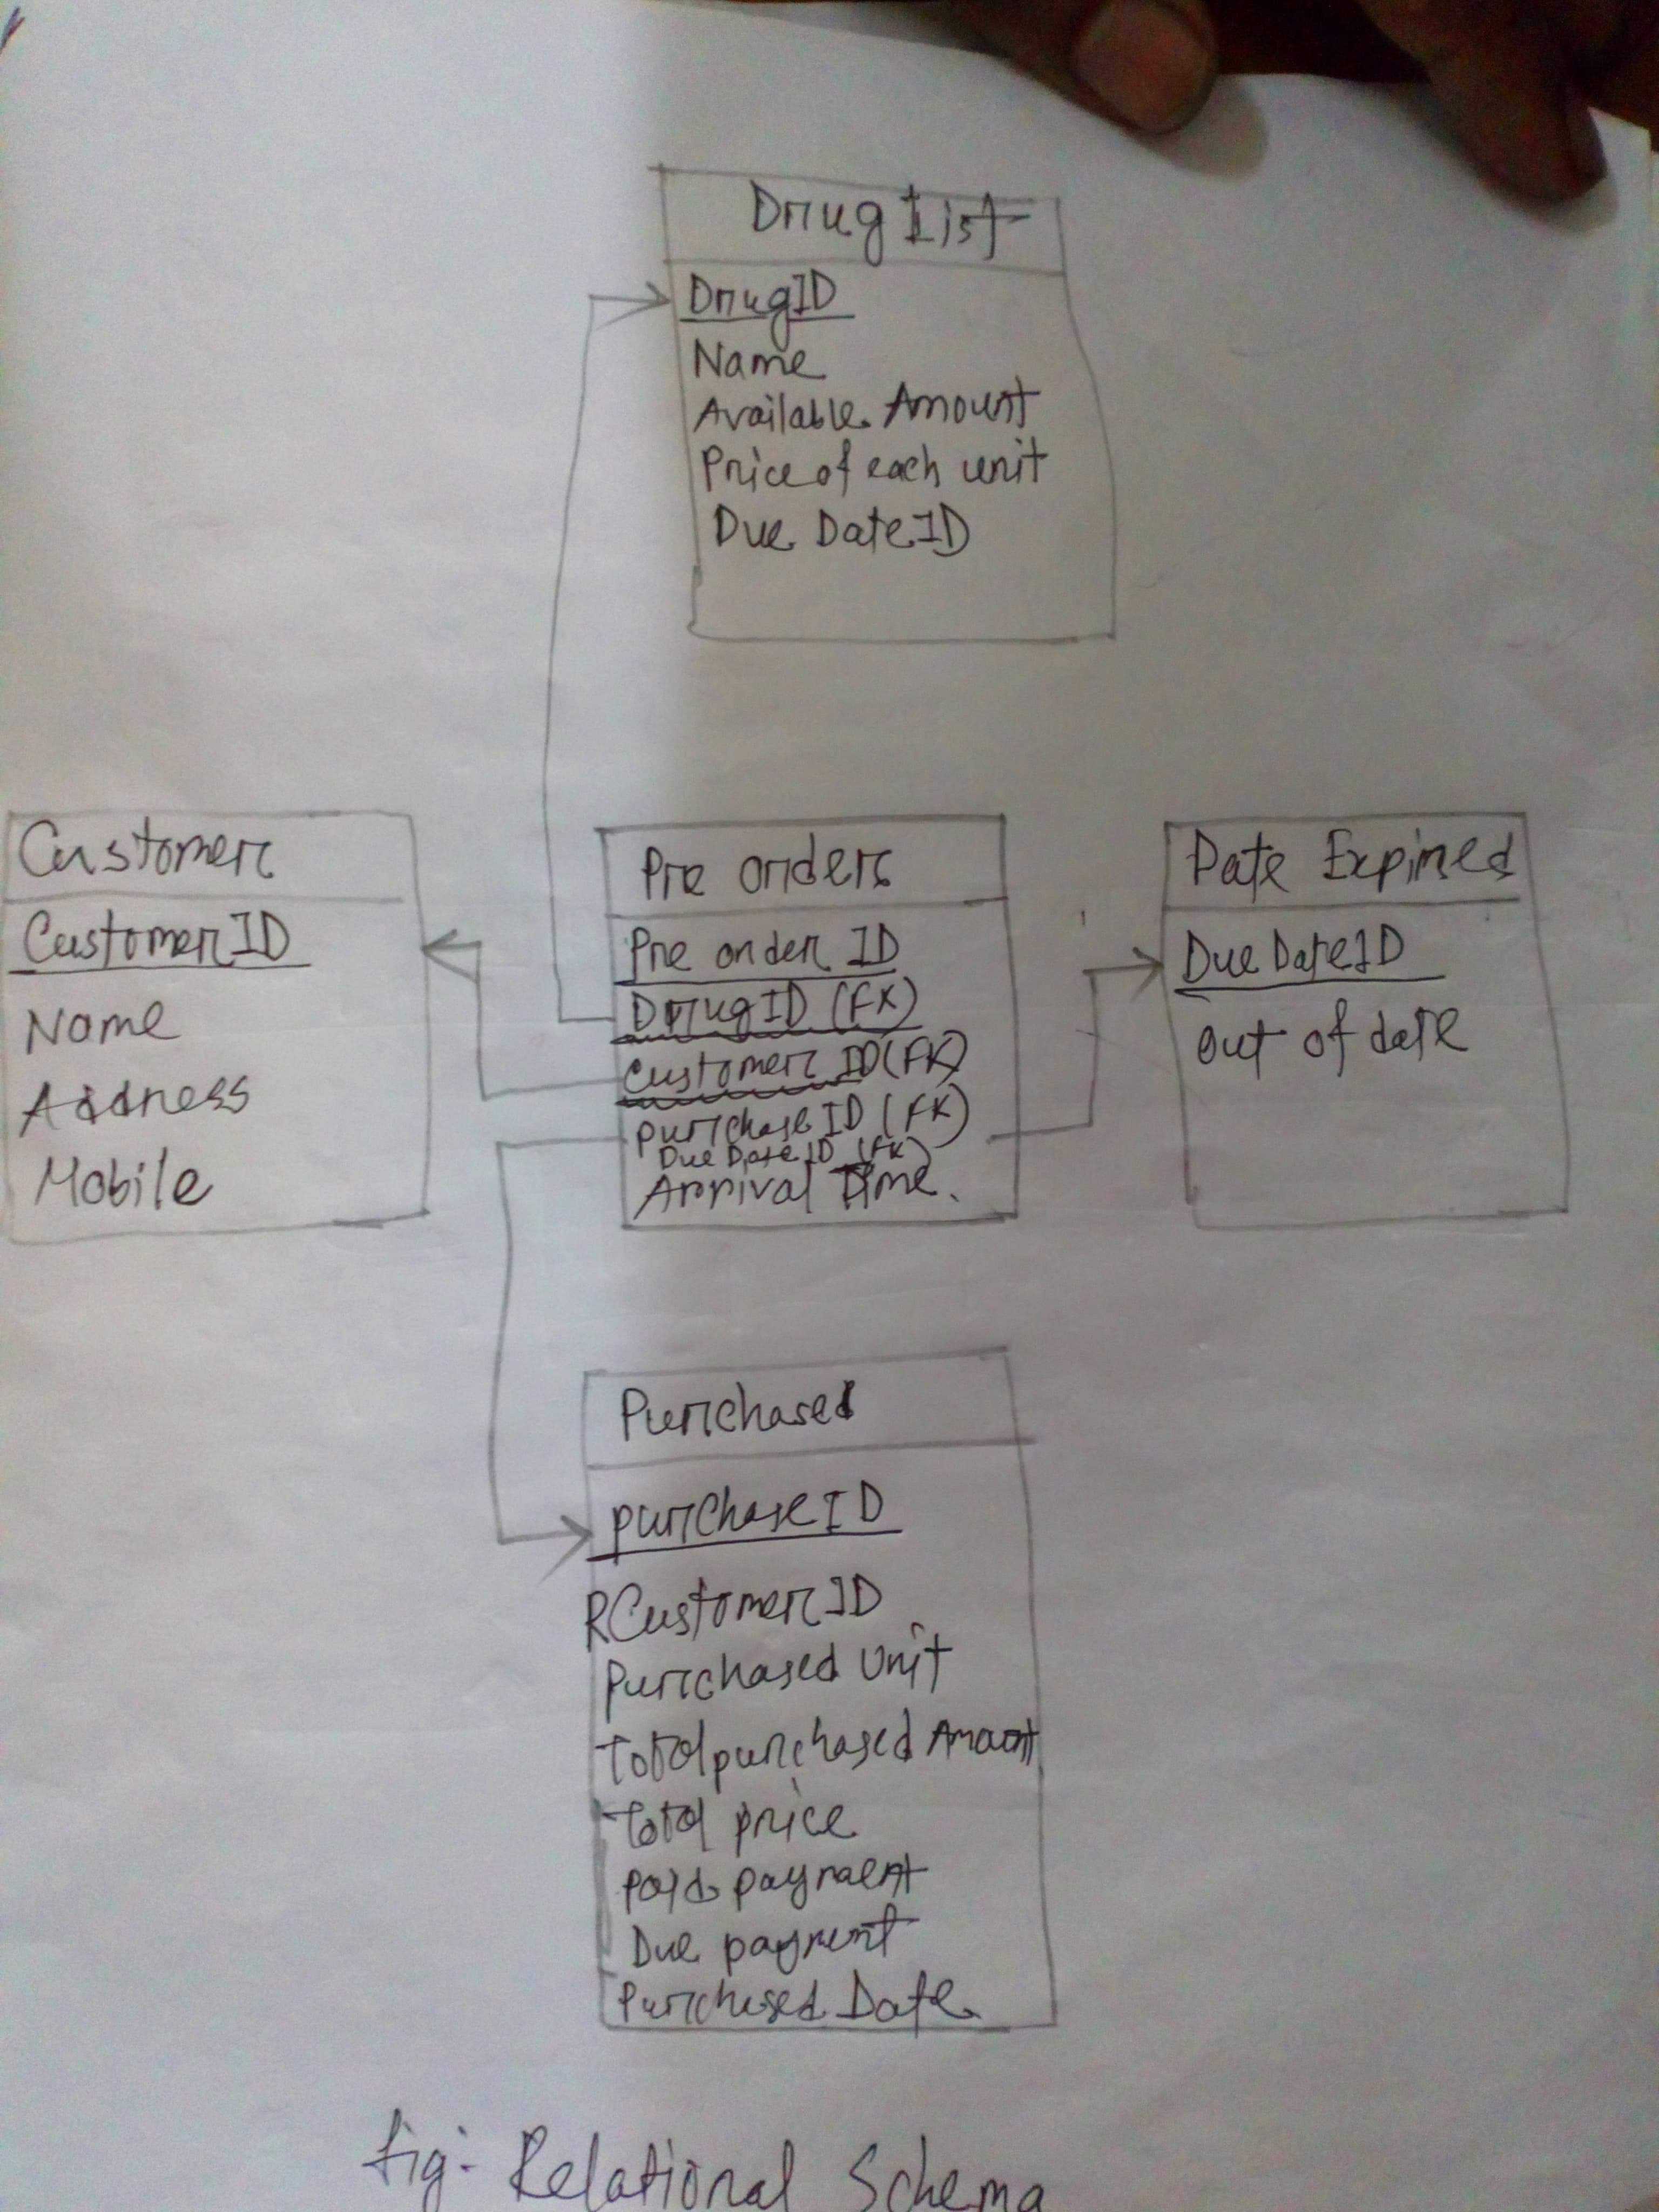 Drug List
DrugID
Name
Available Amount
Price of each unit
Due DateID
Customer
CustomerID
Name
Address
Mobile
Pre orders
Pre order ID
DrugID (FK)
Customer ID (FK)
purchase ID (FK)
Due Date ID (FK)
Arrival Time.
Date Expired
Due DateID
out of date
Purchased
purchase ID
RCustomerID
Purchased Unit
Total purchased Amount
Total price
Paid payment
Due payment
Purchased Date
fig:- Relational Schema